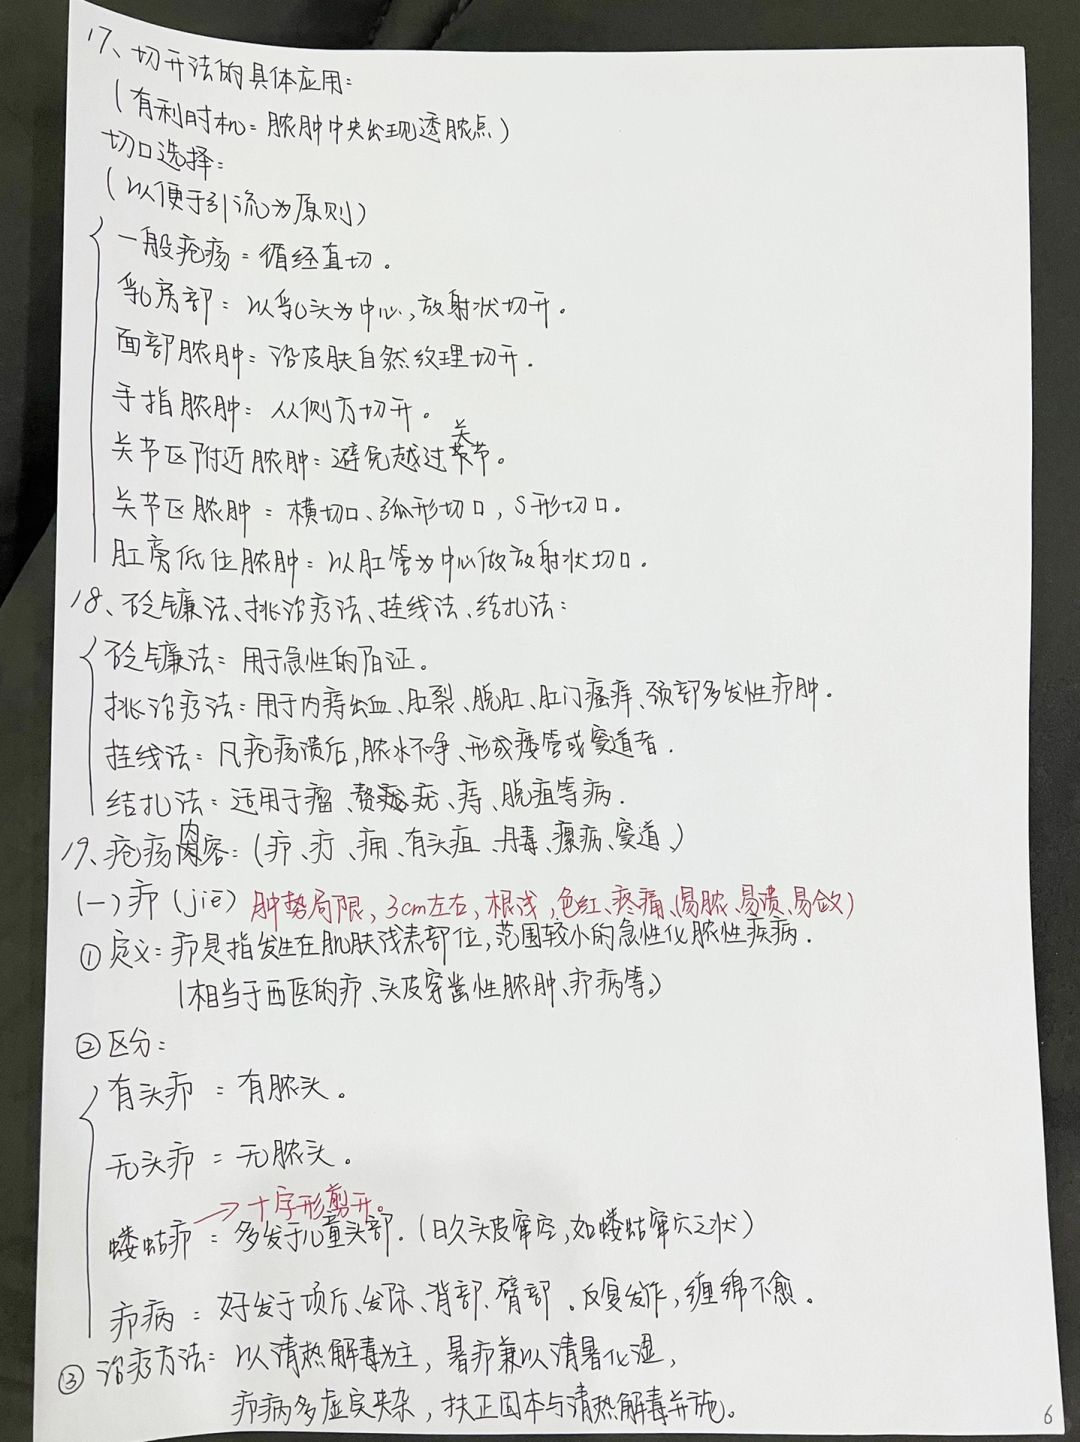 17、切开法的具体应用：
（有利时机：脓肿中央出现透脓点）
切口选择：
（以便于引流为原则）
一般疮疡：循经直切．
乳房部：以乳头为中心，放射状切开。
面部脓肿：沿皮肤自然纹理切开．
手指脓肿：从侧方切开。
关节区附近脓肿：避免越过关节。
关节区脓肿：横切口、弧形切口，S形切口．
肛旁低位脓肿：以肛管为中心做放射状切口．
18、砭镰法、挑治疗法、挂线法、结扎法：
砭镰法：用于急性的阳证。
挑治疗法：用于内痔出血、肛裂、脱肛、肛门瘙痒、颈部多发性疖肿．
挂线法：凡疮疡溃后，脓水不净、形成瘘管或窦道者．
结扎法：适用于瘤、赘疣、痔、脱疽等病．
19、疮疡内容：（疖、疔、痈、有头疽、丹毒、瘰疬、窦道、）
（一）疖（jiē）肿势局限，3cm左右，根浅，色红、疼痛、易脓、易溃、易敛）
①定义：疖是指发生在肌肤浅表部位，范围较小的急性化脓性疾病．
（相当于西医的疖、头皮穿凿性脓肿、疖病等。）
②区分：
有头疖：有脓头。
无头疖：无脓头．
→十字形剪开。
蝼蛄疖：多发于儿童头部．（日久头皮窜空，如蝼蛄窜穴之状）
疖病：好发于项后、发际、背部、臀部．反复发作，缠绵不愈．
③治疗方法：以清热解毒为主，暑疖兼以清暑化湿，
疖病多虚实夹杂，扶正固本与清热解毒并施。
6